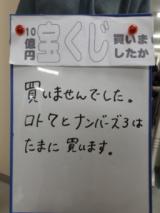 10億円 宝くじ 買いましたか
買いませんでした。
ロト7とナンバーズ3は
たまに買います。